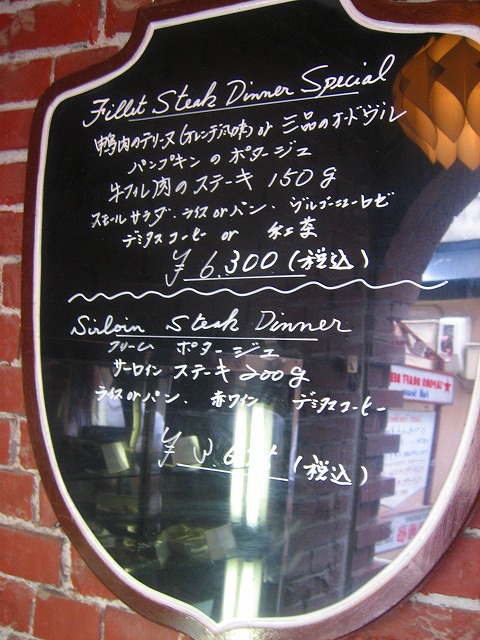 Fillet Steak Dinner Special
鴨肉のテリーヌ(オレンヂ風味) or 三品のオードヴル
パンプキン の ポタージュ
牛フィレ肉の ステーキ 150g
スモールサラダ、ライス or パン、ブルゴーニューロゼ
デミタスコーヒー or 紅茶
¥ 6,300 (税込)
Sirloin Steak Dinner
クリーム ポタージュ
サーロイン ステーキ 200g
ライス or パン、赤ワイン デミタスコーヒー
¥ (税込)